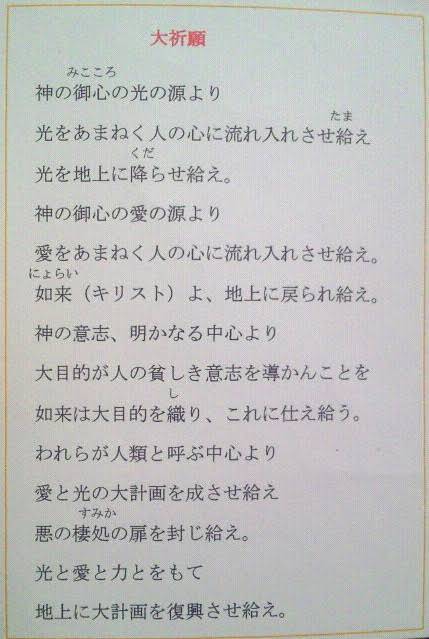 大祈願
みこころ
神の御心の光の源より
たま
光をあまねく人の心に流れ入れさせ給え
くだ
光を地上に降らせ給え。
神の御心の愛の源より
愛をあまねく人の心に流れ入れさせ給え。
にょらい
如来（キリスト）よ、地上に戻られ給え。
神の意志、明かなる中心より
大目的が人の貧しき意志を導かんことを
し
如来は大目的を織り、これに仕え給う。
われらが人類と呼ぶ中心より
愛と光の大計画を成させ給え
すみか
悪の棲処の扉を封じ給え。
光と愛と力とをもて
地上に大計画を復興させ給え。